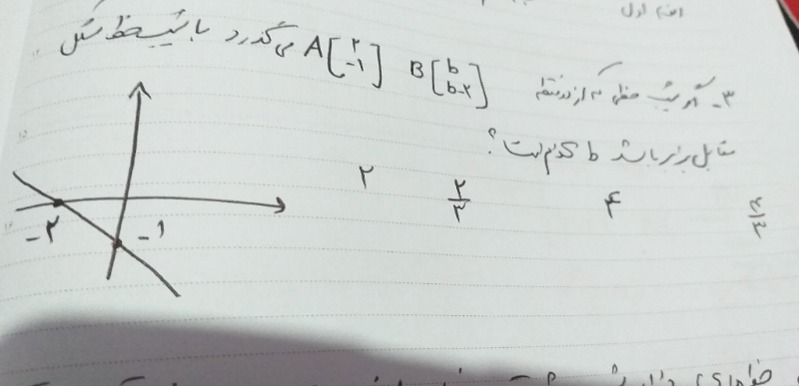 اول
۳- اگر شیب خطی که از دو نقطه B[b b-۲] A[۲ -۱] می‌گذرد با شیب خط شکل
مقابل برابر باشد b کدام است؟
۴/۳ ۴ ۲/۳ ۲
-۲ -۱